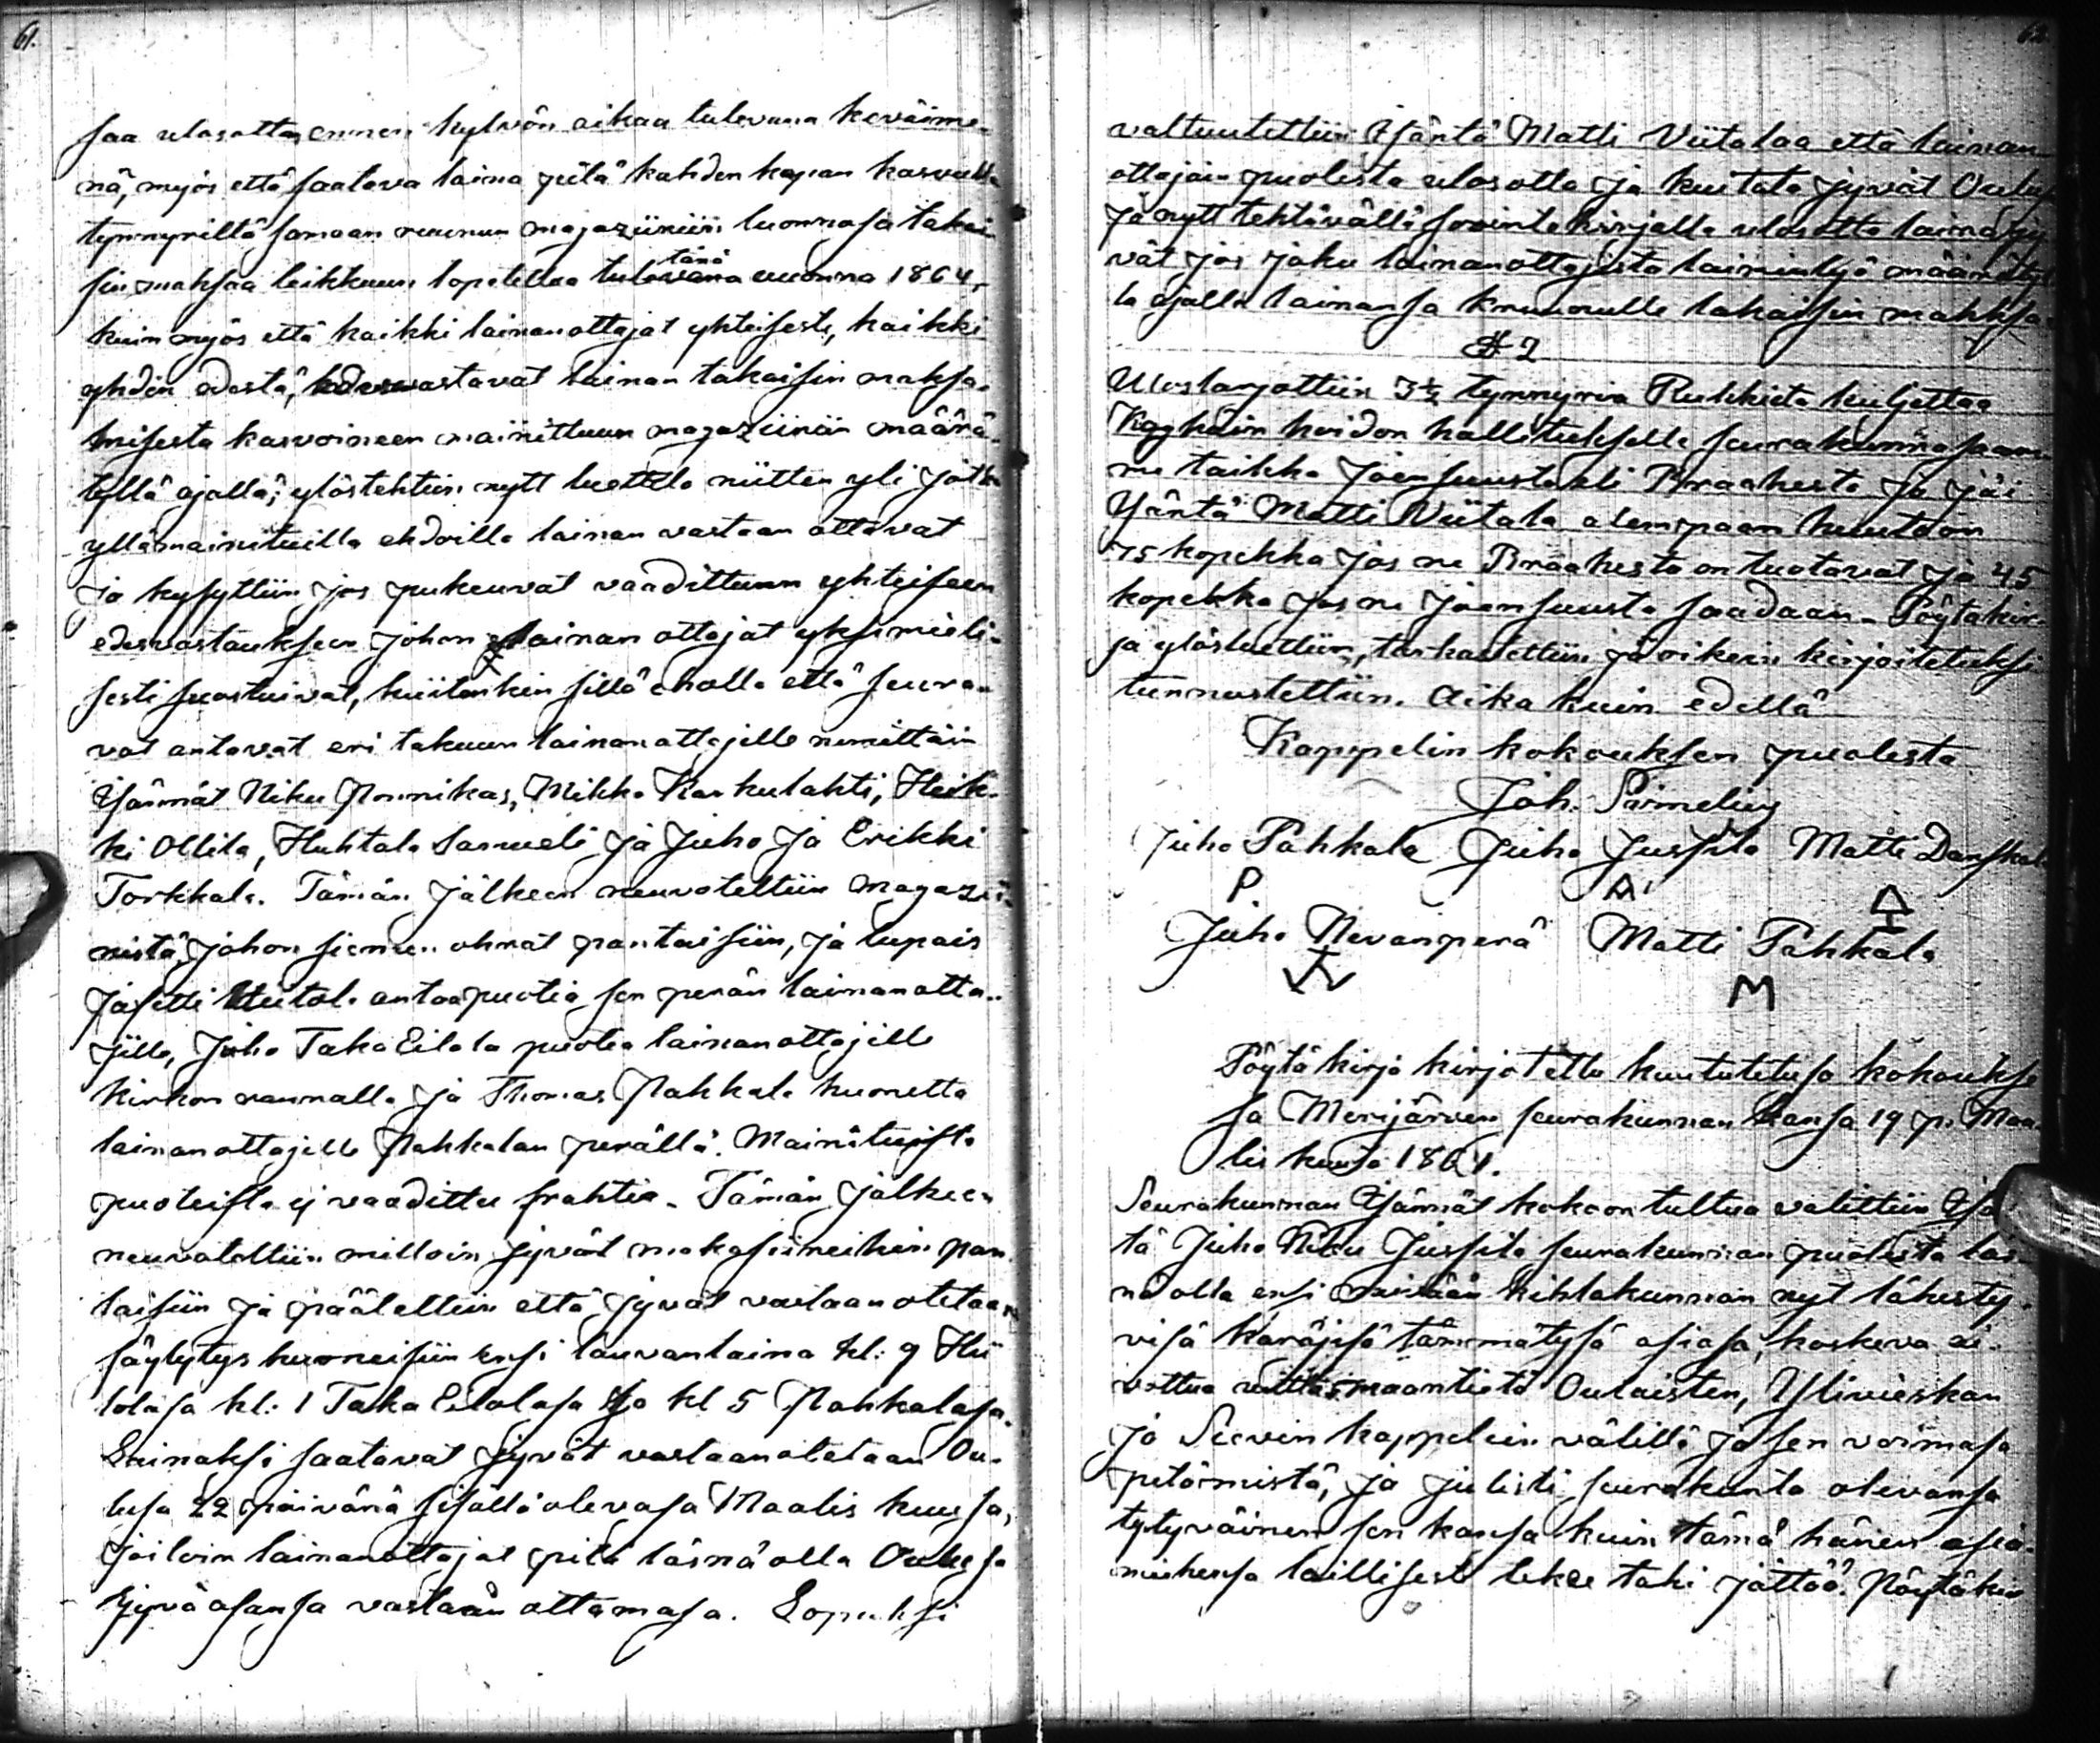 61.
saa ulosottaa ennen kylvön aikaa tulevana keväime-
nä, myös että saatava laina pitä kahden kapan kasvulla
tynnyriltä samaan ruunun magaziiniin luonnosa takai-
sin maksaa leikkuun lopetettua tulevana tänä vuonna 1864,
kuin myös että kaikki lainanottajat yhteisesti, kaikki
yhden edestä, edesvastavat lainan takaisin maksa-
misesta kasvoineen mainittuun magaziiniin määrä-
tyllä ajalla; ylöstehtiin nytt luettelo niitten yli jotka
yllämainituilla ehdoilla lainan vastaan ottavat
ja kysyttiin jos pukeuvat vaadittuun yhteiseen
edesvastaukseen johon lainan ottajat yksimieli-
sesti suostuivat, kuitenkin sillä eholla että seura-
vat antavat eri takuun lainanottajille nimittäin
Isännät Niku Pinnikas, Mikko Karhulahti, Heik-
ki Ollila, Huhtala Samueli ja Juho ja Erikki
Torkkala. Tämän jälkeen neuvoteltiin magazii-
nistä, johon siemen ohrat pantaisiin, ja lupais
Jasetti Hiitola antaa puotia sen perän lainanotta-
jille, Juho Taka Eilola puotia lainanottajille
kirkon rannalla ja Thomas Pahkala huonetta
lainanottajille Pahkalan perällä. Mainituista
puoteista ej vaadittu frahtia. Tämän jälkeen
neuvoteltiin milloin jyvät makasiineihin pan-
taisiin ja päätettiin että jyvät vastaan otetaan
säylytys huoneisiin ensi lauvantaina kl: 9 Hii
tolasa kl: 1 Taka Eilolasa ja kl 5 Pahkalasa.
Lainaksi saatavat jyvät vastaanotetaan Ou-
lusa 22 päivänä sisällä olevasa Maalis kuusa,
jolloin lainanottajat pitä läsnä olla Oulusa
jyvä osansa vastaan ottamasa. Lopuksi
62.
valtuutettiin Isäntä Matti Viitalaa että lainan
ottajain puolesta ulosotta ja kuitata jyvät Oulusa
ja nytt tehtävällä sovinto kirjalla ulosotta laina jy
vät jos joku lainanottajista laiminlyö määrätyl
la ajalla lainansa kruunulle takaisin maksaa
§ 2
Uloslarjottiin 3½ tynnyriä Rukkiita kuljettaa
Köyhäin hoidon hallitukselle seurakunnasamme
taikka Joensuusta eli Braahesta ja jäi
Isäntä Matti Viitala alempaan huutoon
75 kopekka jos ne Braahesta on tuotavat ja 45
kopekka jos ne Joensuusta saadaan. Pöytäkir-
ja ylösluettiin, tarkastettiin ja oikein kirjoitetuksi
tunnustettiin. Aika kuin edellä
Kappelin kokouksen puolesta
Joh. Snimelius
Juho Pahkala Juho Jussila Matti Danskala
P A
Juho Nevanperä Matti Pahkala
M
Pöytä kirja kirjotettu kuulutetusa kokoukse
sa Merijärven seurakunnan kansa 19 p. Maa-
lis kuusa 1864.
Seurakunnan Isännät kokoon tultua valittiin Isän
tä Juho Niku Jussila seurakunnan puolesta läs-
nä olla ensi Kihlakunnan nyt lähesty-
visä käräjisä tämmätysä asiasa, koskeva ai-
vottua maantietä Oulaisten, Ylivieskan
ja Sievin kappelein välillä ja sen voimasa
pitämistä, ja julisti seurakunta olevansa
tytyväinen sen kansa kuin tämä hänen asia-
miehensä laillisesti tekee taki jättää. Pöytäkir